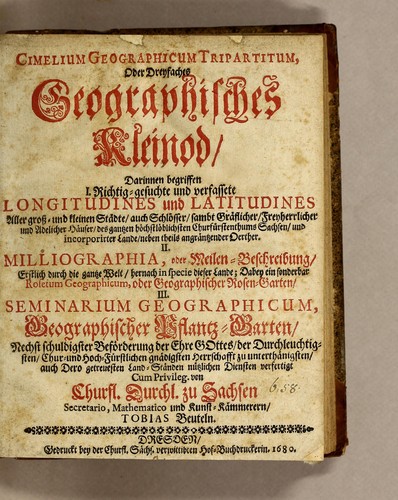 CIMELIUM GEOGRAPHICUM TRIPARTITUM,
Oder Dreyfaches
Geographisches
Kleinod/
Darinnen begriffen
I. Richtig-gesuchte und verfassete
LONGITUDINES und LATITUDINES
Aller groß- und kleinen Städte/ auch Schlösser/ sambt Gräflicher/ Freyherrlicher
und Adelicher Häuser/ des gantzen höchstlöblichsten Churfürstenthums Sachsen/ und
incorporirter Lande/ neben theils angräntzender Oerther.
II.
MILLIOGRAPHIA, oder Meilen-Beschreibung/
Erstlich durch die gantze Welt/ hernach in specie dieser Lande; Dabey ein sonderbar
Rosetum Geographicum, oder Geographischer Rosen-Garten/
III.
SEMINARIUM GEOGRAPHICUM,
Geographischer Pflantz-Garten/
Nechst schuldigster Beförderung der Ehre GOttes/ der Durchleuchtig-
sten/ Chur- und Hoch-Fürstlichen gnädigsten Herrschafft zu unterthänigsten/
auch Dero getreuesten Land-Ständen nützlichen Diensten verfertigt
Cum Privileg. von
Churfl. Durchl. zu Sachsen
Secretario, Mathematico und Kunst-Kämmerern/
TOBIAS Beuteln.
DRESDEN/
Gedruckt bey der Churfl. Sächs. verwittibten Hof-Buchdruckerin. 1680.